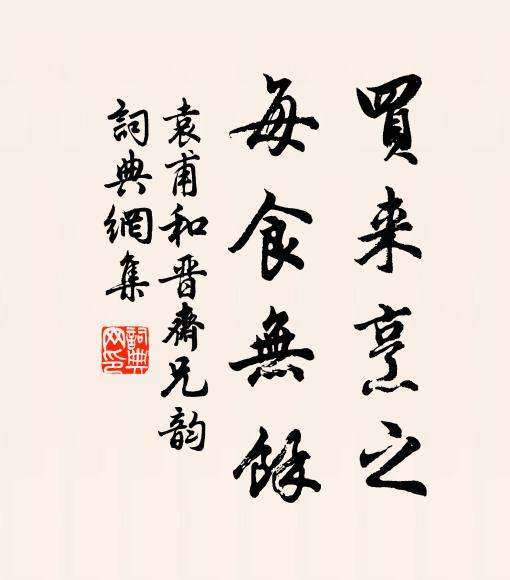 買来烹之
每食無餘
袁甫和晋齋兄韵
詞典網集
詞典網印